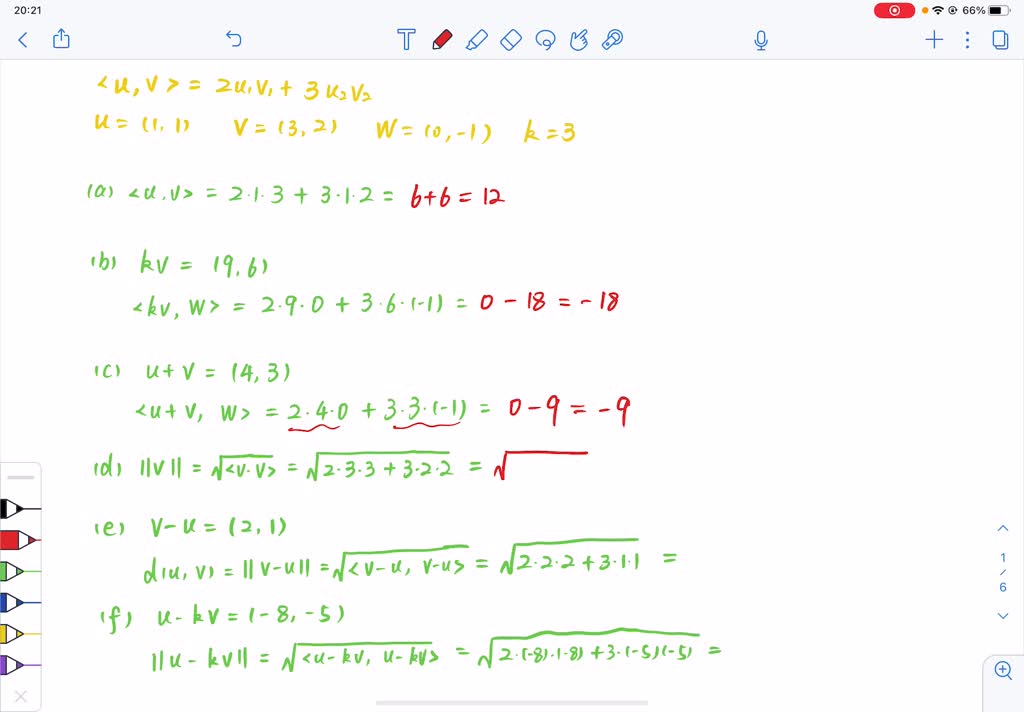 20:21
66%
T
<u, v> = 2u₁v₁ + 3u₂v₂
u = (1, 1) v = (3, 2) w = (0, -1) k = 3
(a) <u, v> = 2·1·3 + 3·1·2 = 6+6 = 12
(b) kv = (9, 6)
<kv, w> = 2·9·0 + 3·6·(-1) = 0 - 18 = -18
(c) u + v = (4, 3)
<u + v, w> = 2·4·0 + 3·3·(-1) = 0 - 9 = -9
(d) ||v|| = √<v·v> = √2·3·3 + 3·2·2 = √
(e) v - u = (2, 1)
d(u, v) = ||v-u|| = √<v-u, v-u> = √2·2·2 + 3·1·1 =
(f) u - kv = (-8, -5)
||u - kv|| = √<u-kv, u-kv> = √2·(-8)·(-8) + 3·(-5)(-5) =
1
/
6